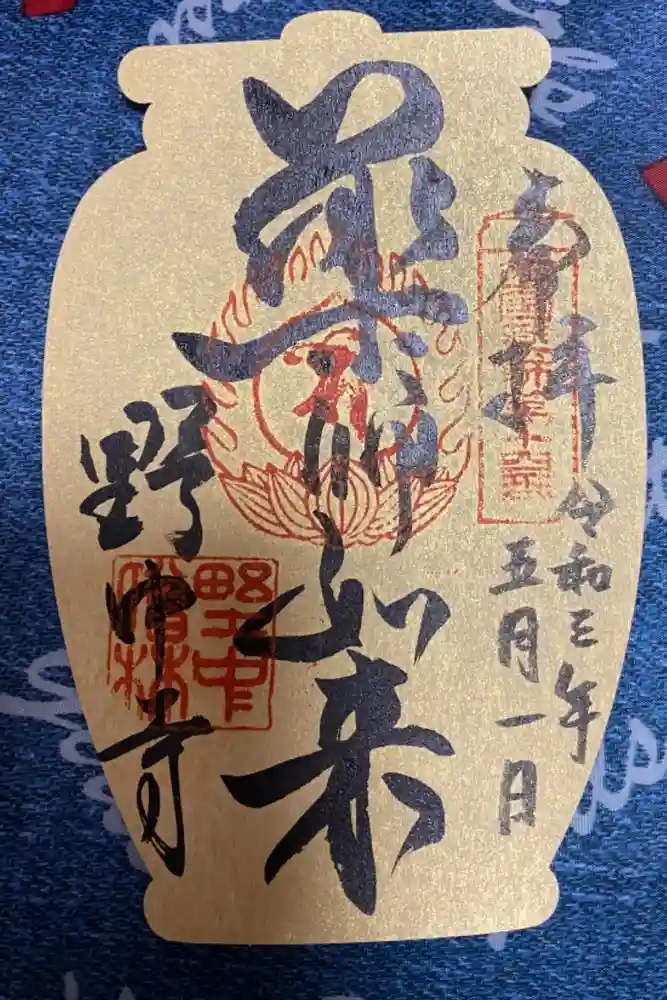 奉拝
令和三年
五月一日
薬師如来
野中寺
野中
僧林